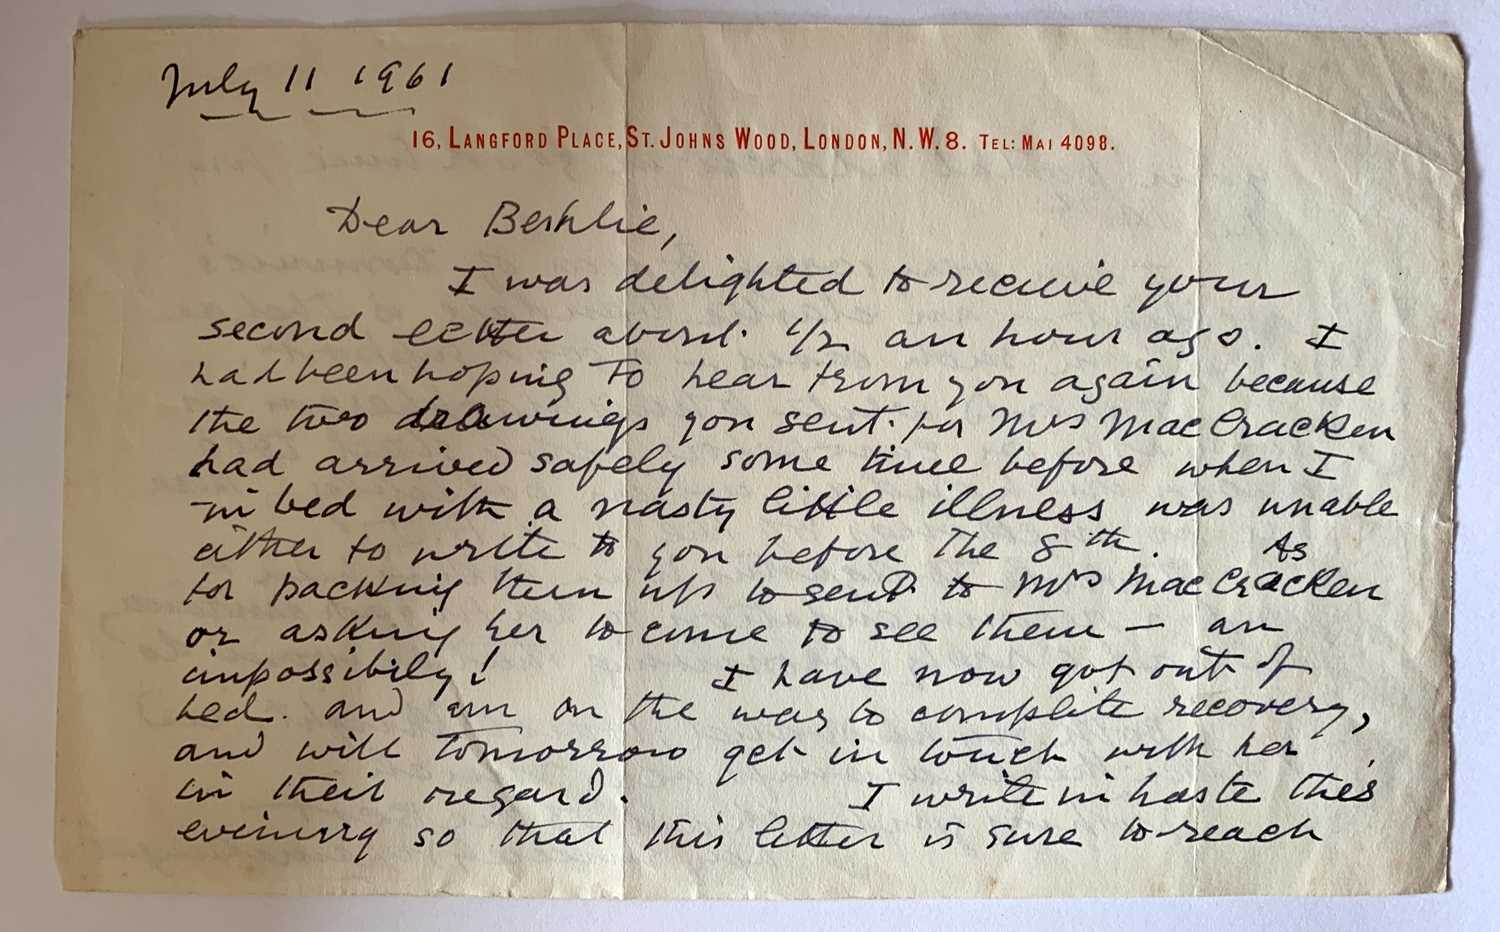 July 11 1961
16, LANGFORD PLACE, ST. JOHNS WOOD, LONDON, N.W.8. TEL: MAI 4098.
Dear Beshlie,
I was delighted to receive your
second letter about 1/2 an hour ago. I
had been hoping to hear from you again because
the two drawings you sent for Mrs MacCracken
had arrived safely some time before when I
in bed with a nasty little illness was unable
either to write to you before the 8th. As
for packing them up to send to Mrs MacCracken
or asking her to come to see them — an
impossibily! I have now got out of
bed. and am on the way to complete recovery,
and will tomorrow get in touch with her
in their regard. I write in haste this
evening so that this letter is sure to reach